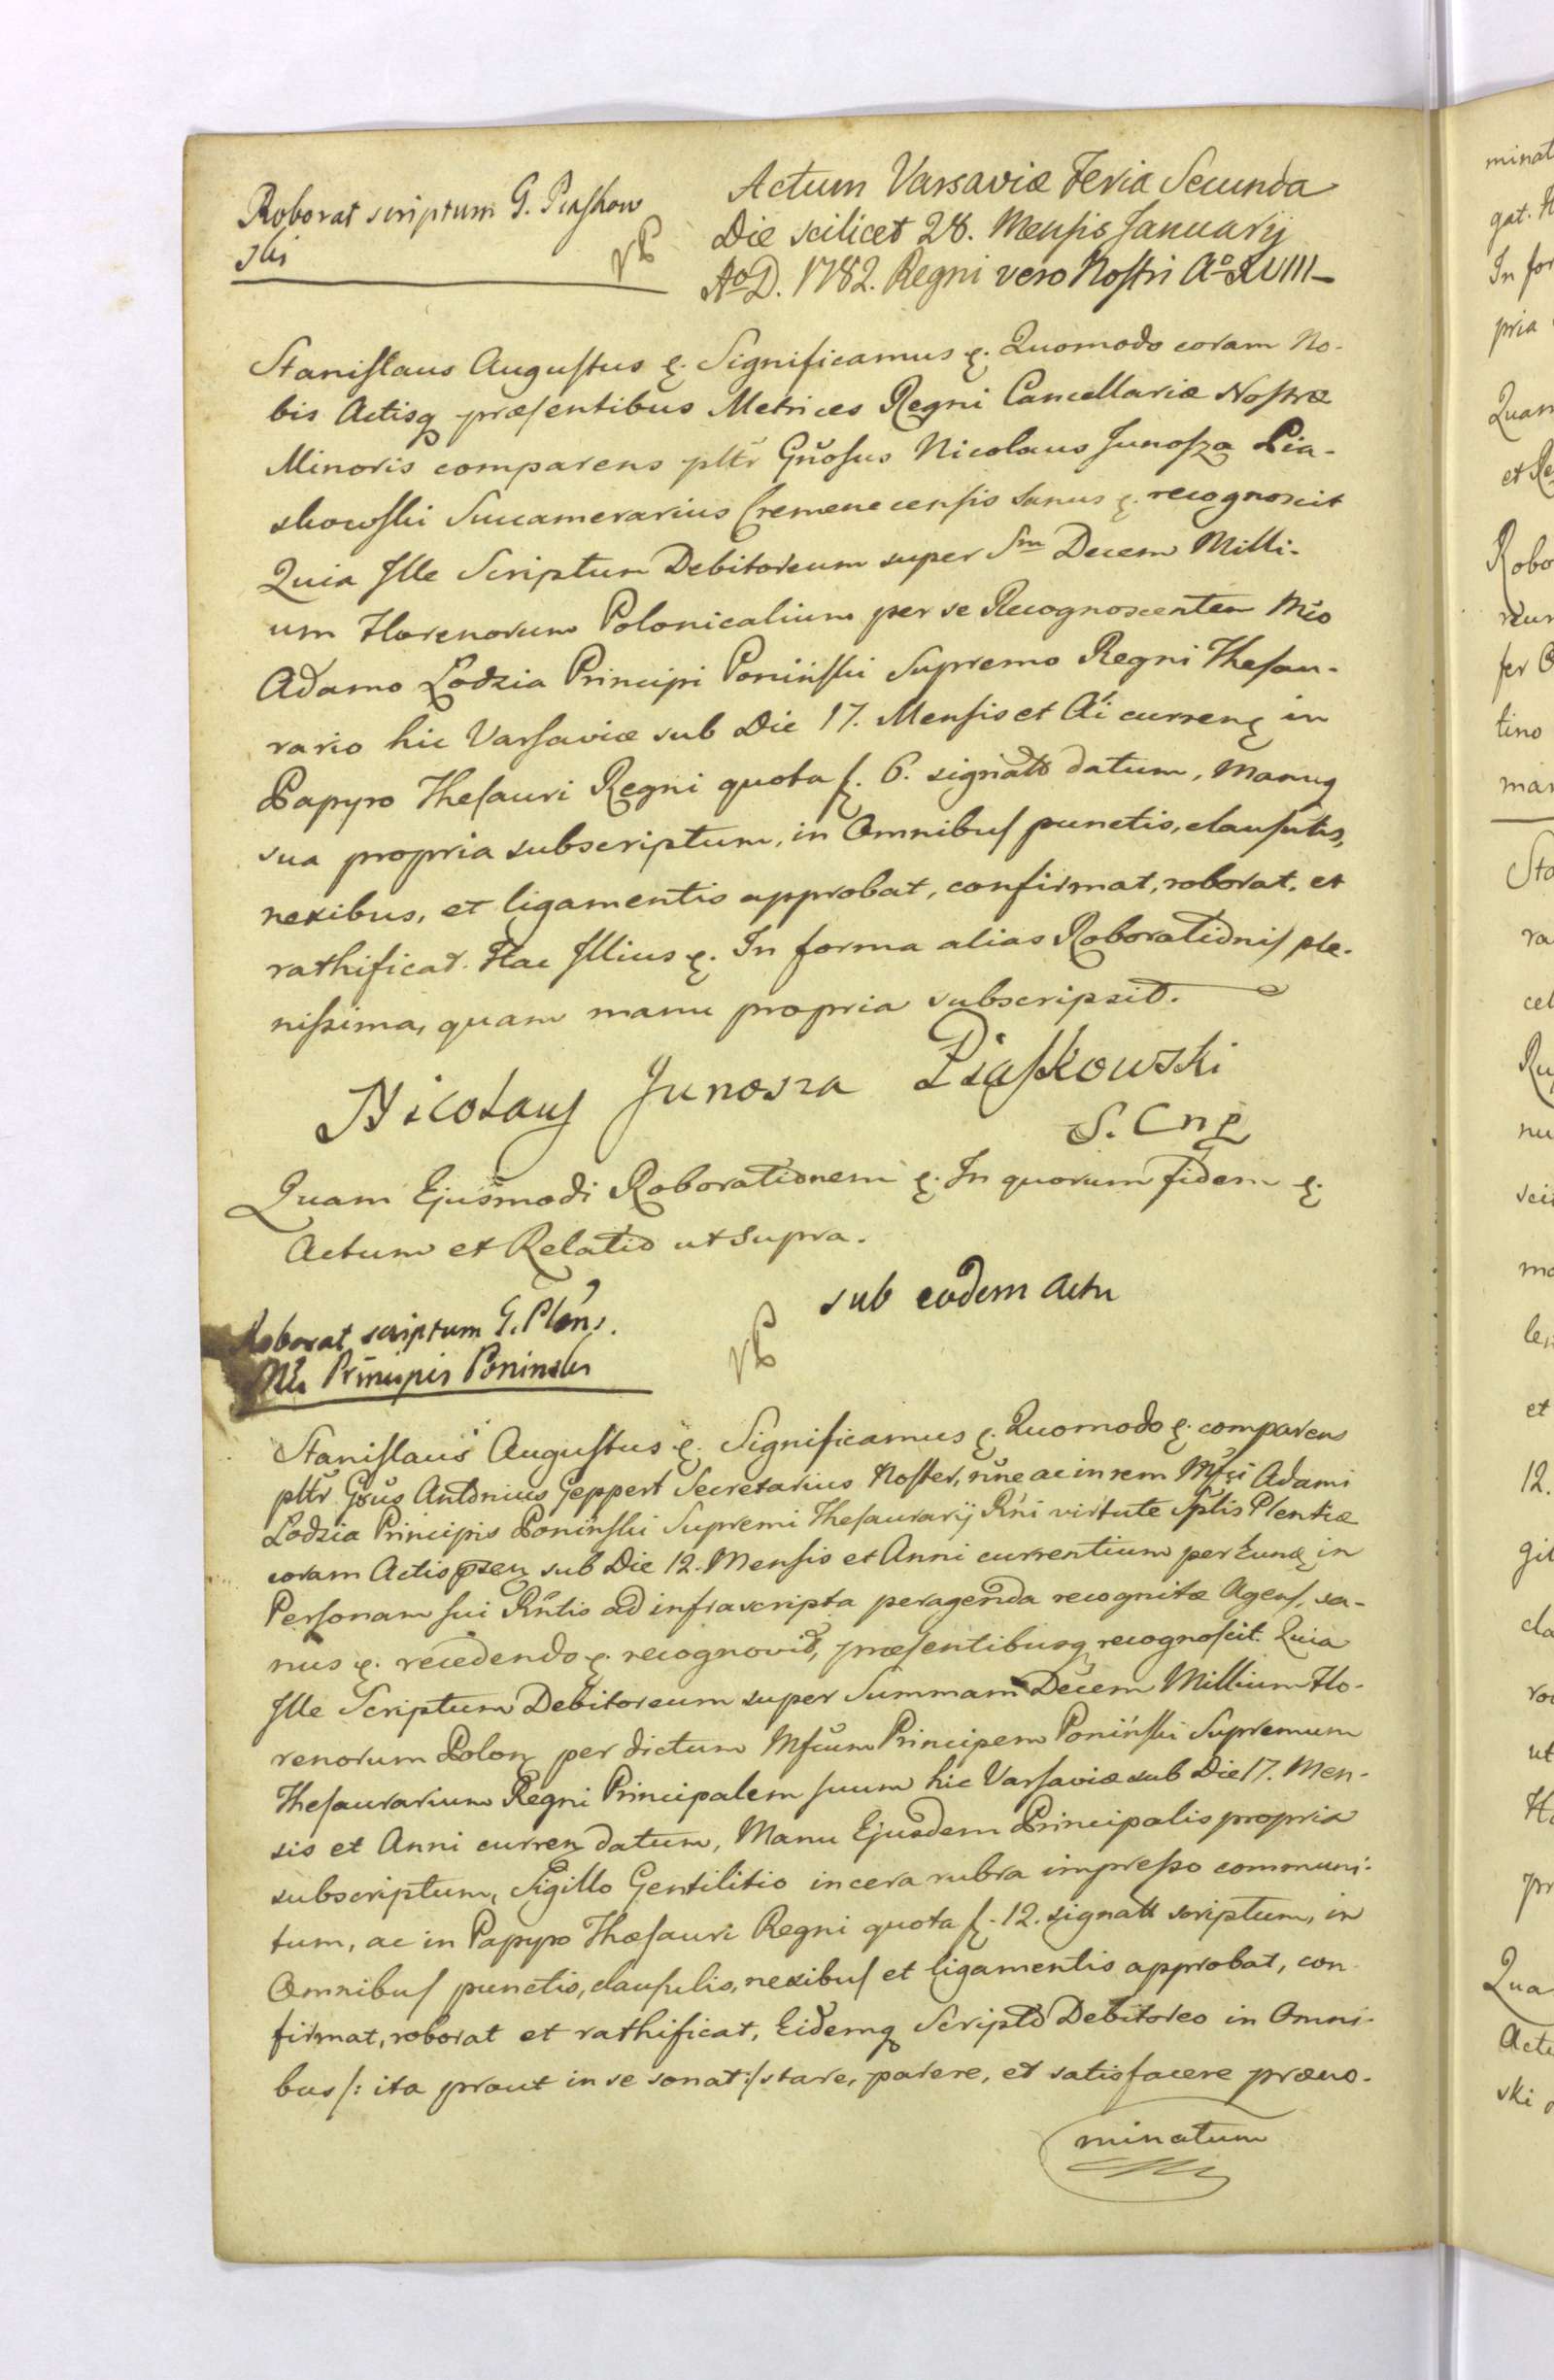 Roborat scriptum G. Piaskow
ski
Actum Varsaviæ Feria Secunda
Die scilicet 28. Mensis Januarij
Aº D. 1782. Regni vero Nostri Aº XVIII
Stanislaus Augustus ę. Significamus ę. Quomodo coram No-
bis Actisq præsentibus Metrices Regni Cancellariæ Nostræ
Minoris comparens pltr Gnosus Nicolaus Junosza Pia-
skowski Succamerarius Cremenecensis Sanus ę. recognoscit
Quia Ille Scriptum Debitoreum super Sm Decem Milli-
um Florenorum Polonicalium per se Recognoscentem Mco
Adamo Lodzia Principi Poniński Supremo Regni Thesau-
rario hic Varsaviæ sub Die 17. Mensis et Ai currenę in
Papyro Thesauri Regni quota f. 6. signatto datum, Manuq
sua propria subscriptum, in Omnibus punctis, clausulis,
nexibus, et ligamentis approbat, confirmat, roborat, et
rathificat. Hac Illius ę. In forma alias Roborationis ple-
nissima, quam manu propria subscripsit.
Nicolaus Junosza Piaskowski
S. Cnę
Quam Ejusmodi Roborationem ę. In quorum fidem ę.
Actum et Relatio ut supra.
Roborat scriptum G. Plens.
Mci Principis Poninski
sub eodem Actu
Stanislaus Augustus ę. Significamus ę. Quomodo ę. comparens
pltr Gsus Antonius Geppert Secretarius Noster, nne ac in rem Mfci Adami
Lodzia Principis Poniński Supremi Thesaurarij Rni virtute Splis Plentiæ
coram Actis pñzen sub Die 12. Mensis et Anni currentium per Eundę in
Personam sui Rntis ad infrascripta peragenda recognitæ Agens, sa-
nus ę. recedendo ę. recognovit, præsentibusq recognoscit. Quia
Ille Scriptum Debitoreum super Summam Decem Millium Flo-
renorum Polon per dictum Mfcum Principem Poniński Supremum
Thesaurarium Regni Principalem suum hic Varsaviæ sub Die 17. Men-
sis et Anni curren datum, Manu Ejusdem Principalis propria
subscriptum, Sigillo Gentilitio in cera rubra impresso communi-
tum, ac in Papyro Thæsauri Regni quota f. 12. signatt scriptum, in
Omnibus punctis, clausulis, nexibus et ligamentis approbat, con
firmat, roborat et rathificat, Eidemq Scripto Debitoreo in Omni-
bus /: ita prout in se sonat :/ stare, parere, et satisfacere præno-
minatum